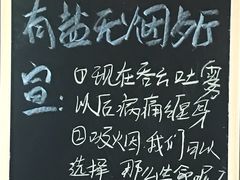 有盐无烟诊所
宣：①现在吞云吐雾
以后病痛缠身
②吸烟我们可以
选择 那么